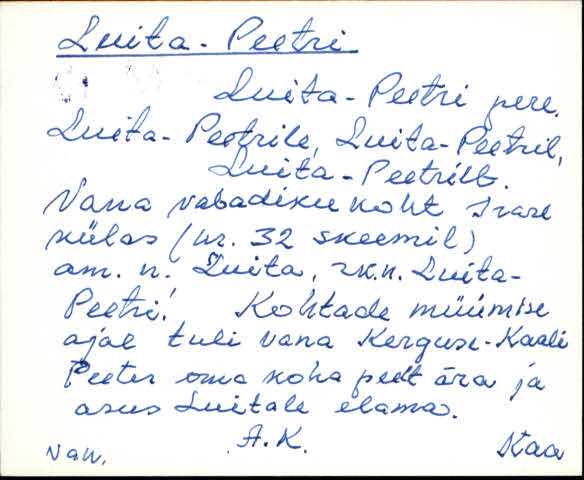 Luita-Peetri
Luita-Peetri pere.
Luita-Peetrile, Luita-Peetril,
Luita-Peetrilt.
Vana vabadiku koht Ivare
külas (nr. 32 skeemil)
am. n. Luita, rk.n. Luita-
Peetri. Kohtade müümise
ajal tuli vana Kerguse-Kaali
Peeter oma koha pealt ära ja
asus Luitale elama.
Van. A.K. Kaa